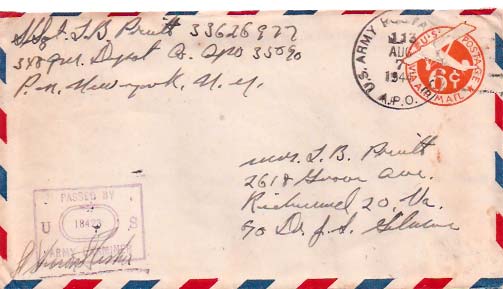 S/Sgt. L.B. Pruitt 33626927
348 Q.M. Depot Co. APO 350 90
P.M. New York, N.Y.
U.S. ARMY POSTAL
113
AUG
7
1944
A.P.O.
VIA AIR MAIL
U.S. POSTAGE
6¢
Mrs. L.B. Pruitt
2618 Grove Ave.
Richmond 20, Va.
c/o Dr. J.S.
PASSED BY
U 18423 S
ARMY EXAMINER